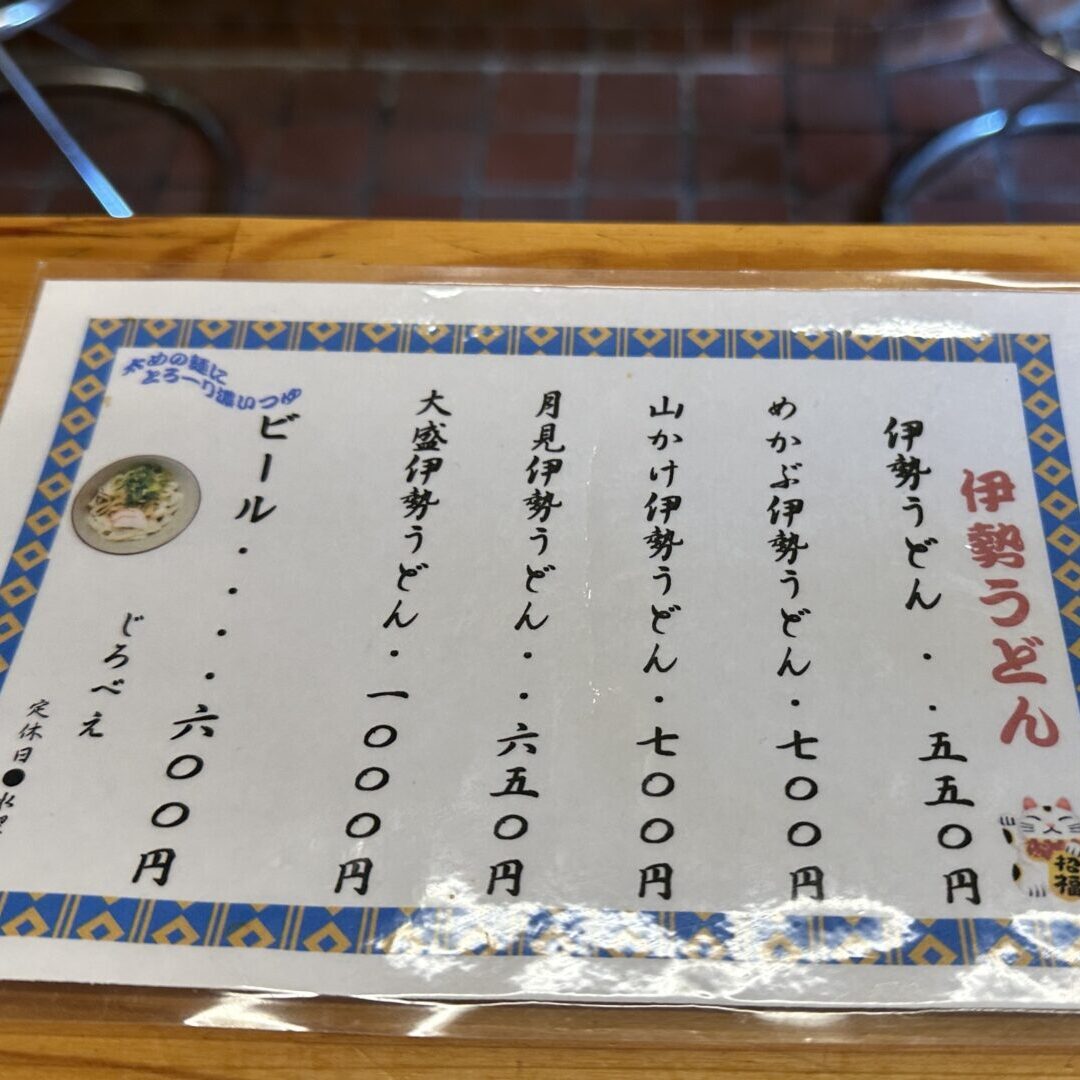 伊勢うどん
伊勢うどん・・五五〇円
めかぶ伊勢うどん・七〇〇円
山かけ伊勢うどん・七〇〇円
月見伊勢うどん・・六五〇円
大盛伊勢うどん・一〇〇〇円
ビール・・・・六〇〇円
太めの麺に
とろーり濃いつゆ
じろべえ
定休日●水曜
招福